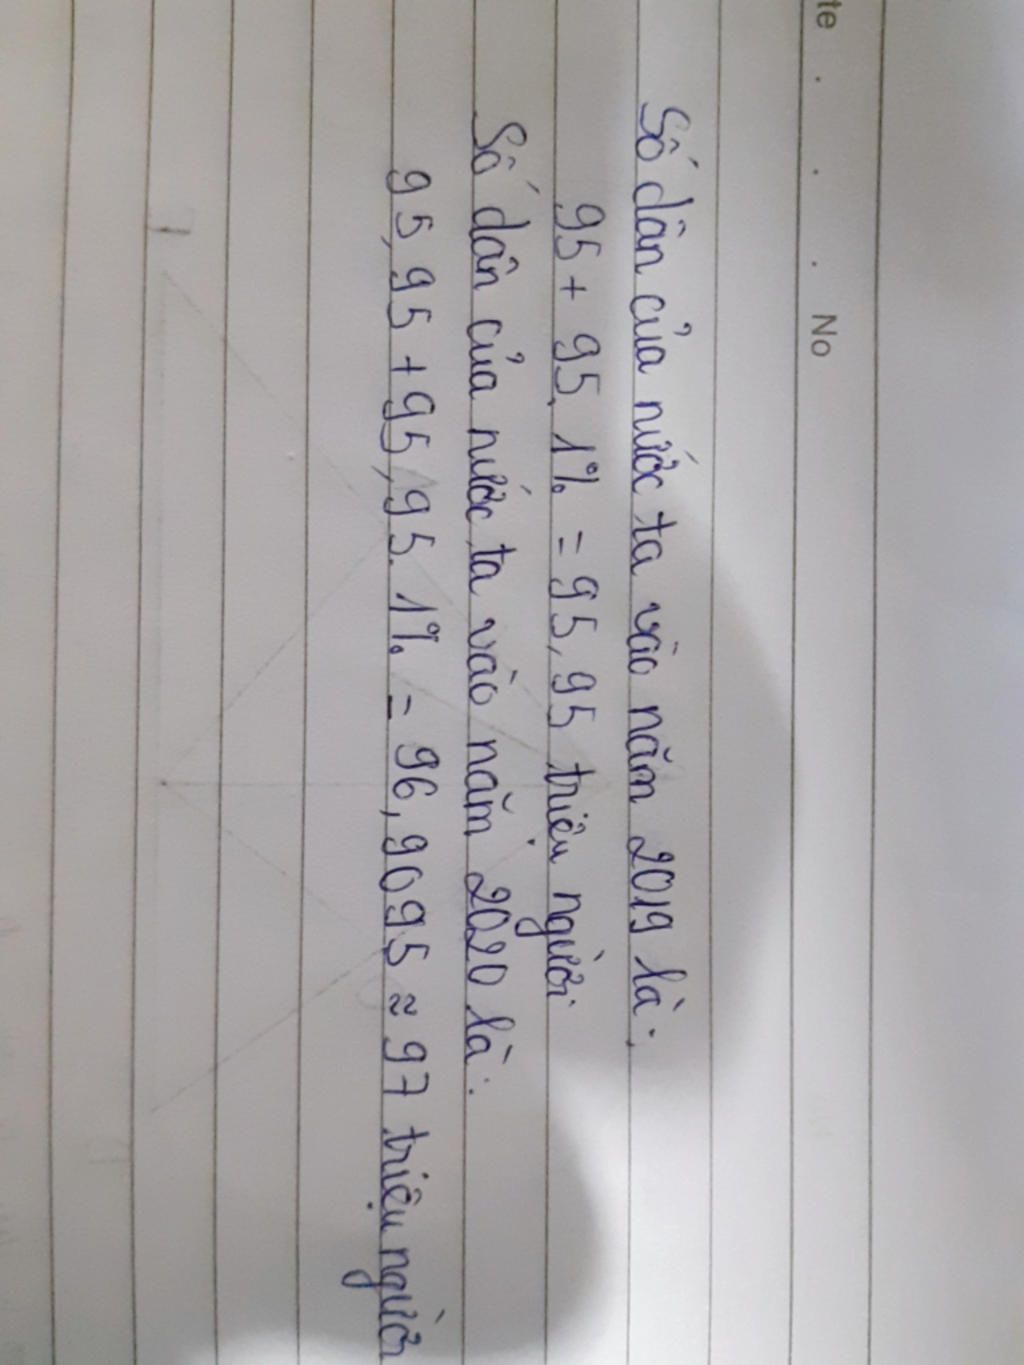 te . . . No
Số dân của nước ta vào năm 2019 là:
95 + 95. 1% = 95,95 triệu người
Số dân của nước ta vào năm 2020 là:
95,95 + 95,95. 1% = 96,9095 ≈ 97 triệu người